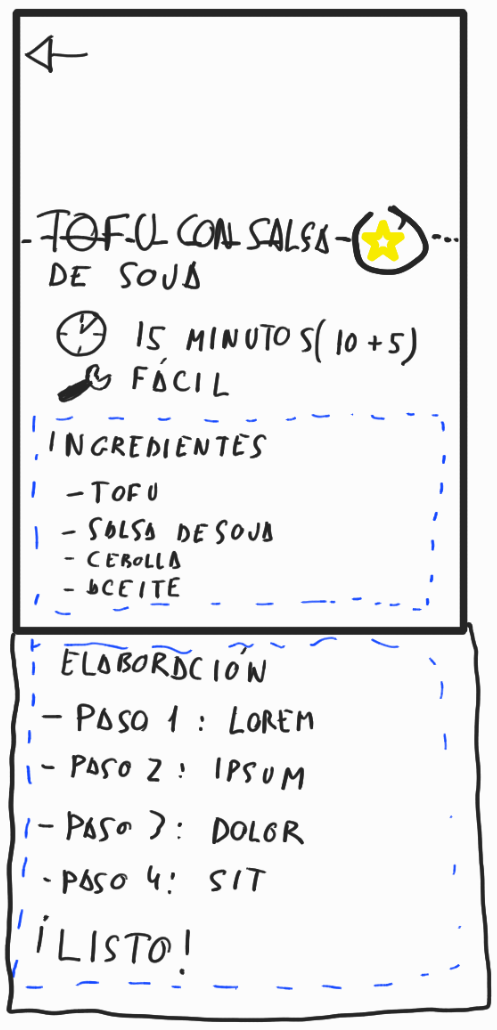 TOFU CON SALSA
DE SOJA
15 MINUTOS (10 + 5)
FÁCIL
INGREDIENTES
- TOFU
- SALSA DE SOJA
- CEBOLLA
- ACEITE
ELABORACIÓN
- PASO 1 : LOREM
- PASO 2 : IPSUM
- PASO 3 : DOLOR
- PASO 4 : SIT
¡LISTO!